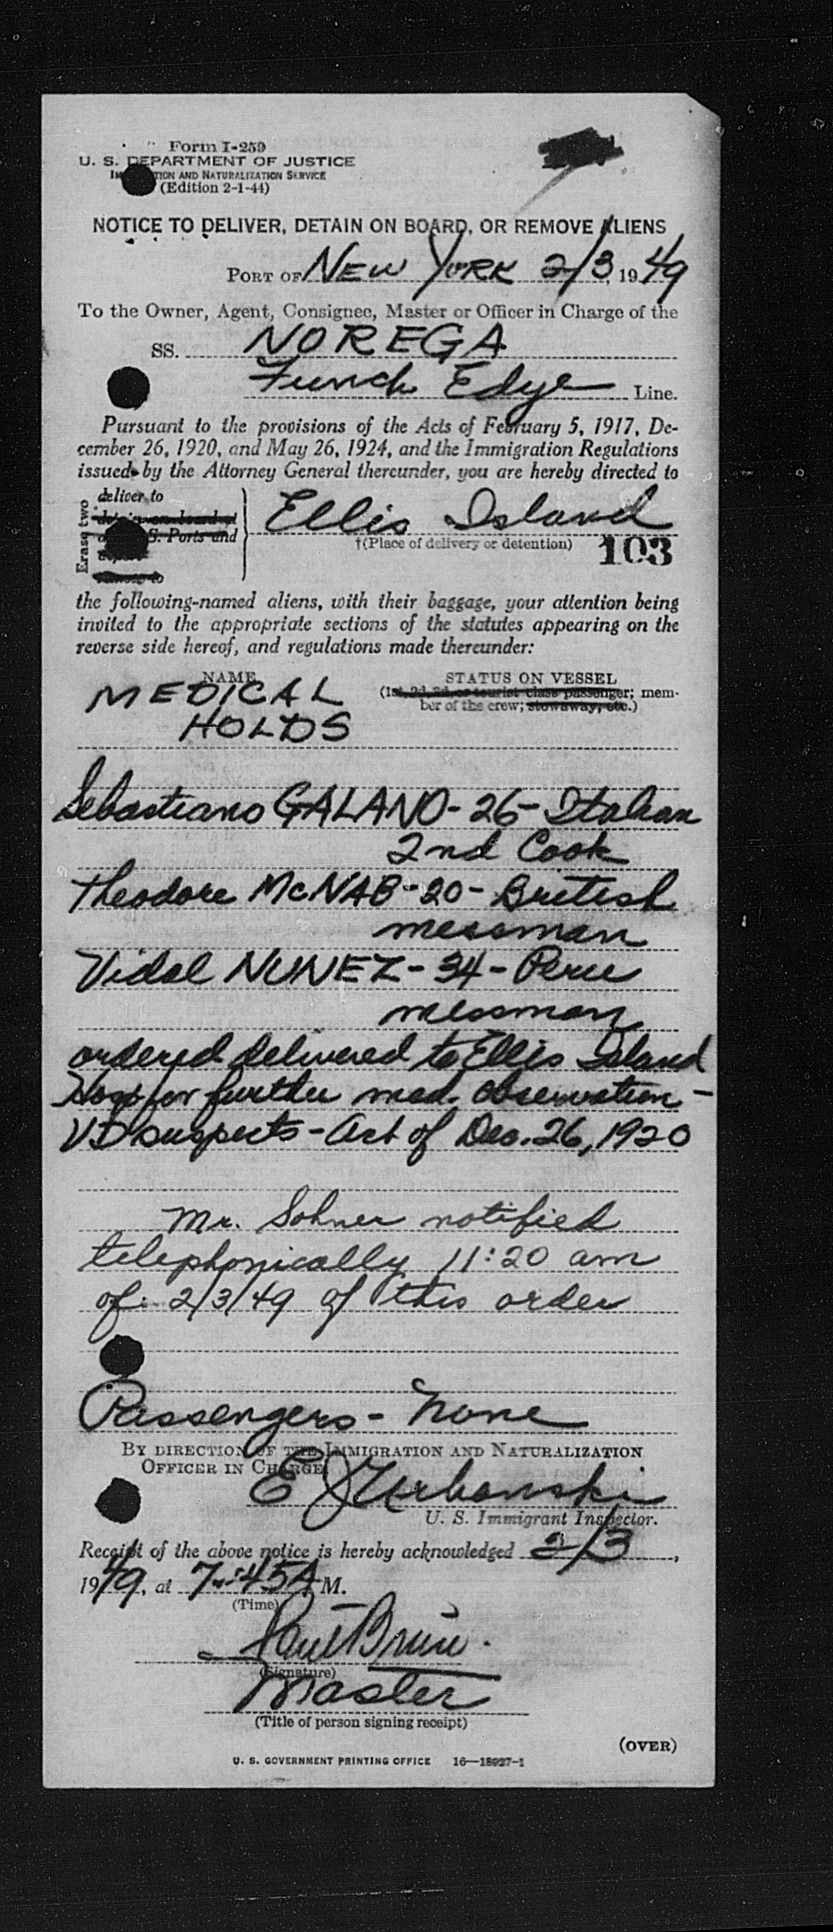 Form I-259
U. S. DEPARTMENT OF JUSTICE
TION AND NATURALIZATION SERVICE
(Edition 2-1-44)
NOTICE TO DELIVER, DETAIN ON BOARD, OR REMOVE ALIENS
PORT OF NEW YORK 2/3, 1949
To the Owner, Agent, Consignee, Master or Officer in Charge of the
SS. NOREGA
Funch Edye Line.
Pursuant to the provisions of the Acts of February 5, 1917, De-
cember 26, 1920, and May 26, 1924, and the Immigration Regulations
issued by the Attorney General thereunder, you are hereby directed to
Erase two
deliver to
detain on board at
S. Ports and
to
Ellis Island
†(Place of delivery or detention) 103
the following-named aliens, with their baggage, your attention being
invited to the appropriate sections of the statutes appearing on the
reverse side hereof, and regulations made thereunder:
NAME STATUS ON VESSEL
(1st, 2d, 3d, or tourist class passenger; mem-
ber of the crew; stowaway, etc.)
MEDICAL
HOLDS
Sebastiano GALANO - 26 - Italian
2nd Cook
Theodore McNAB - 20 - British
messman
Vidal NUNEZ - 34 - Peru
messman
ordered delivered to Ellis Island
Hosp for further med. observation -
VD suspects - Act of Dec. 26, 1920
Mr. Sohner notified
telephonically 11:20 am
of 2/3/49 of this order
Passengers - none
BY DIRECTION OF THE IMMIGRATION AND NATURALIZATION
OFFICER IN CHARGE
E J Urbanski
U. S. Immigrant Inspector.
Receipt of the above notice is hereby acknowledged 2/3,
1949, at 7:45 A M.
(Time)
(Signature)
Master
(Title of person signing receipt)
(OVER)
U. S. GOVERNMENT PRINTING OFFICE 16—18927-1